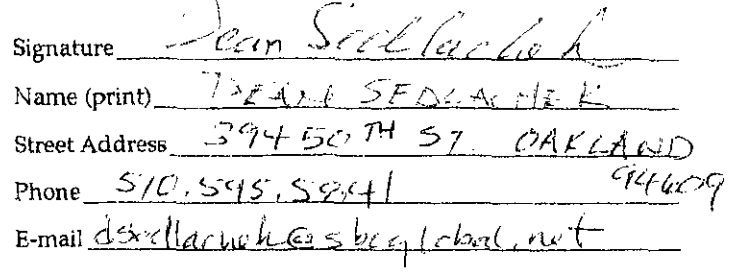 Signature Dean Sedlachek
Name (print) DEAN SEDLACHEK
Street Address 394 50TH ST. OAKLAND
94609
Phone 510.595.5941
E-mail dsedlachek@sbcglobal.net